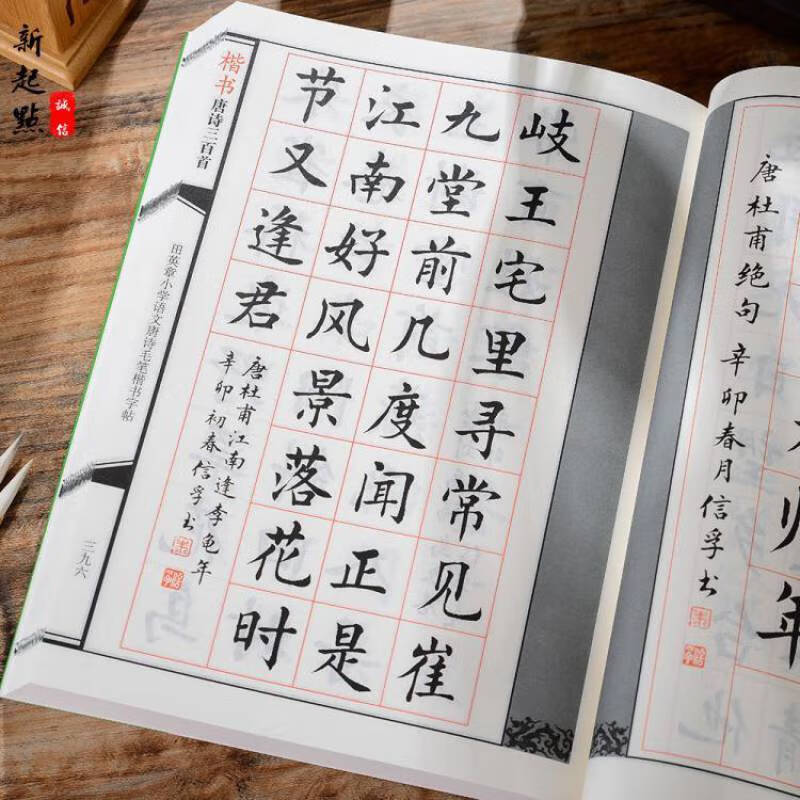 新起點
誠信
楷书
唐诗三百首
田英章小学语文唐诗毛笔楷书字帖
三九六
岐王宅里寻常见崔
九堂前几度闻正是
江南好风景落花时
节又逢君
唐杜甫江南逢李龟年
辛卯初春信孚书
唐杜甫绝句 辛卯春月信孚书